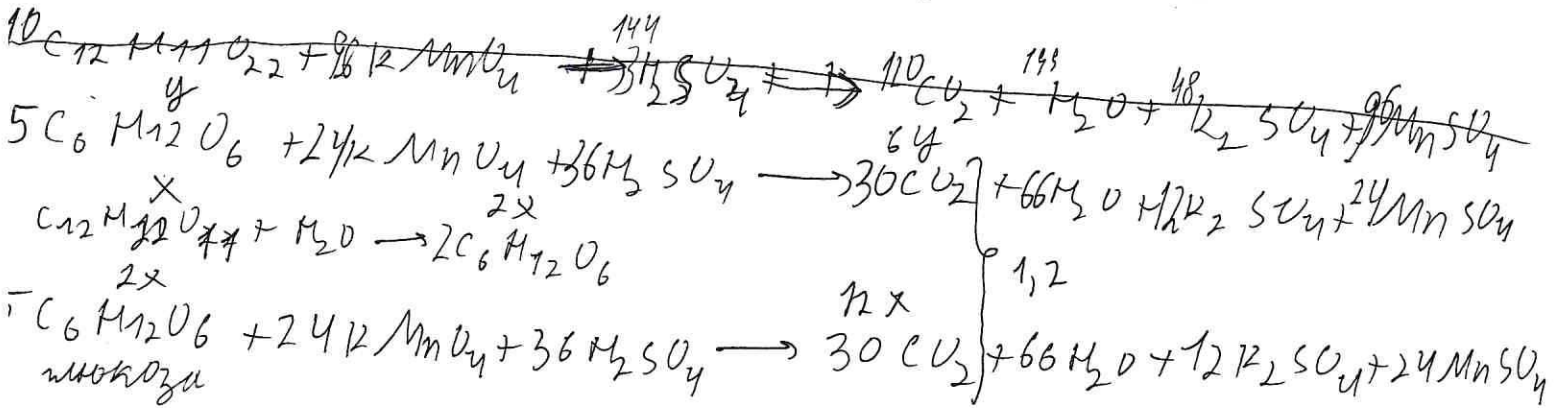 10 C12 H11 O22 + 96 K MnO4 + 144 H2SO4 = 110 CO2 + 144 H2O + 48 K2SO4 + 96 MnSO4
y 6y
5 C6H12O6 + 24K MnO4 + 36H2SO4 → 30CO2 + 66H2O + 12K2SO4 + 24MnSO4
x 2x
C12H22O11 + H2O → 2C6H12O6
1,2
2x 12x
5 C6H12O6 + 24K MnO4 + 36H2SO4 → 30CO2 + 66H2O + 12K2SO4 + 24MnSO4
глюкоза